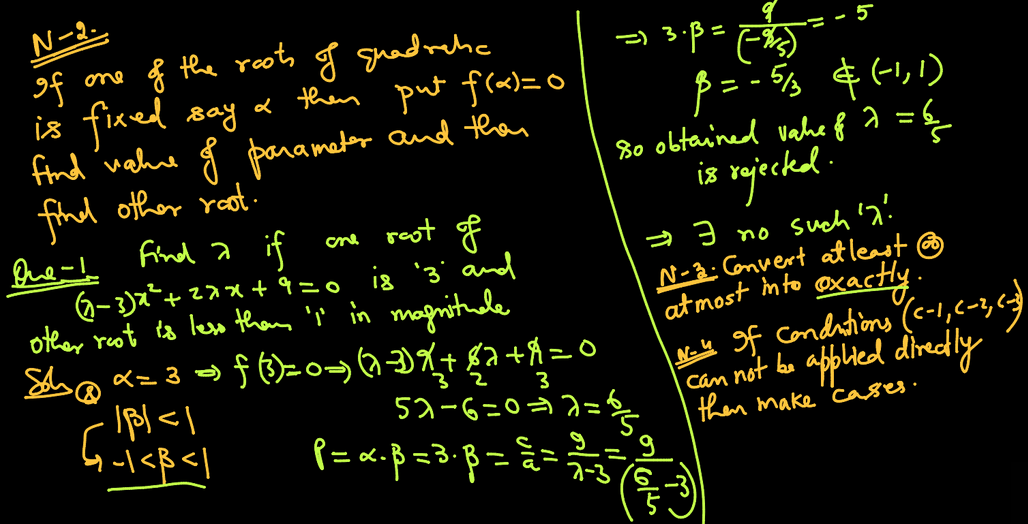 N-2.
If one of the roots of quadratic
is fixed say α then put f(α)=0
find value of parameter and then
find other root.
Que-1 Find λ if one root of
(λ-3)x²+2λx+9=0 is '3' and
other root is less than '1' in magnitude
Soln α=3 ⇒ f(3)=0 ⇒ (λ-3)9+6λ+9=0
3 2 3
|β|<1
5λ-6=0 ⇒ λ=6/5
→ -1<β<1
P=α.β=3.β=c/a=9/(λ-3)=9/(6/5-3)
⇒ 3.β=9/(-9/5)=-5
β=-5/3 ∉ (-1,1)
so obtained value of λ=6/5
is rejected.
⇒ ∃ no such 'λ'.
N-3: Convert atleast or
atmost into exactly.
N-4 If Conditions (C-1, C-2, C-3)
can not be applied directly
then make cases.